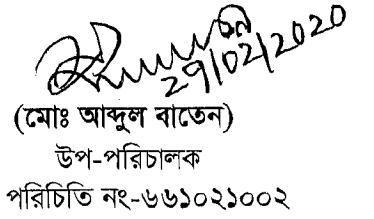 29/02/2020
(মোঃ আব্দুল বাতেন)
উপ-পরিচালক
পরিচিতি নং-৬৬১০২১০০২